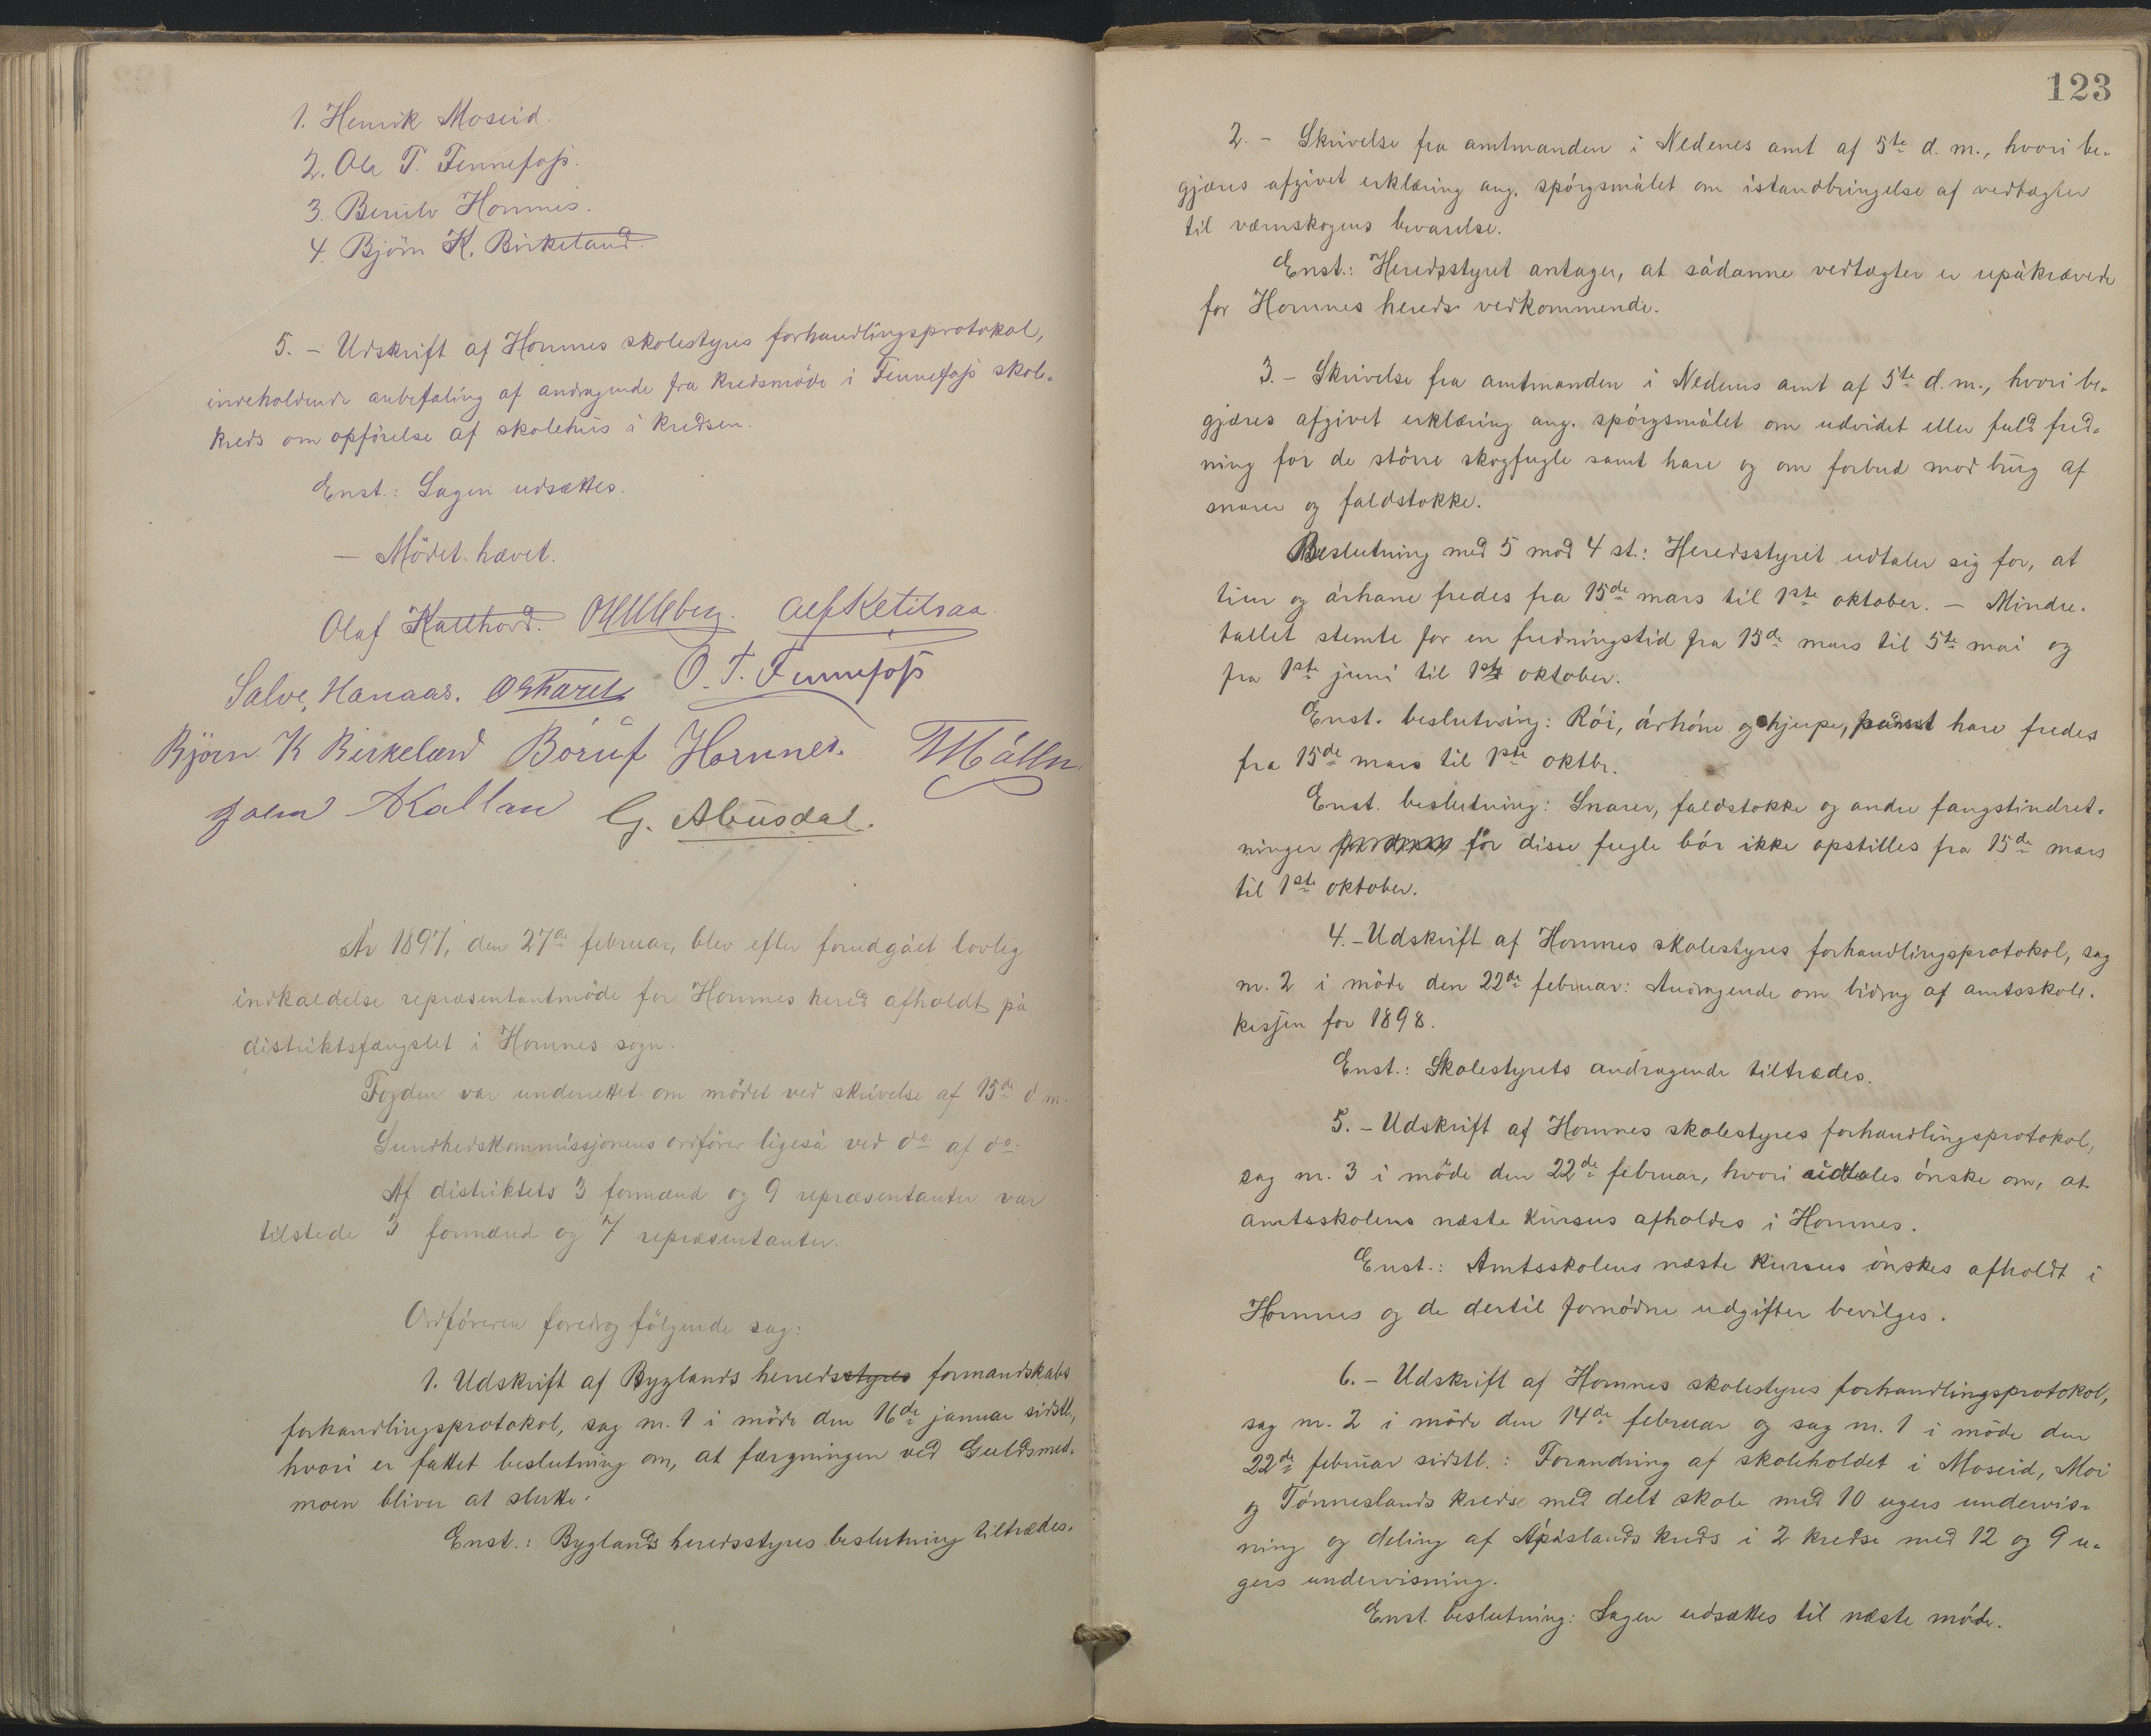 1. Henrik Moseid.
2. Ole T. Fennefoss.
3. Berulv Hornnes.
4. Björn K. Birkeland.
5. – Udskrift af Hornnes skolestyres forhandlingsprotokol,
indeholdende anbefaling af andragende fra kredsmöde i Fennefoss skole-
kreds om opförelse af skolehus i kredsen.
Enst.: Sagen udsættes.
– Mödet hævet.
Olaf Katthord. O H Uleberg. Alf Ketilsaa.
Salve Hanaas. O. T. Fennefoss
Björn K Birkeland Börúf Hornnes.
John Kallan G. Abusdal.
År 1897, den 27de februar, blev efter forudgået lovlig
indkaldelse repræsentantmöde for Hornnes hered afholdt på
distriktsfængslet i Hornnes sogn.
Fogden var underrettet om mödet ved skrivelse af 15de d. m.
Sundhedskommissjonens ordförer ligeså ved do af do.
Af distriktets 3 formænd og 9 repræsentanter var
tilstede 3 formænd og 7 repræsentanter.
Ordföreren foredrog fölgende sag:
1. Udskrift af Byglands herredsstyres formandskabs
forhandlingsprotokol, sag nr. 1 i möde den 16de januar sidstl,
hvori er fattet beslutning om, at færgningen ved Guldsmed-
moen bliver at slutte.
Enst.: Byglands heredsstyres beslutning tiltrædes.
123
2. – Skrivelse fra amtmanden i Nedenes amt af 5te d. m., hvori be-
gjæres afgivet erklæring ang. spörgsmålet om istandbringelse af vedtægter
til værnskogens bevarelse.
Enst.: Heredsstyret antager, at sådanne vedtægter er upåkrævede
for Hornnes hereds vedkommende.
3. – Skrivelse fra amtmanden i Nedenes amt af 5te d. m., hvori be-
gjæres afgivet erklæring ang. spörgsmålet om udvidet eller fuld fred-
ning for de större skogfugle samt hare og om forbud mod brug af
snarer og faldstokke.
Beslutning med 5 mod 4 st.: Heredsstyret udtaler sig for, at
tiur og århane fredes fra 15de mars til 1ste oktober. – Mindre-
tallet stemte for en fredningstid fra 15de mars til 5te mai og
fra 1ste juni til 1ste oktober.
Enst. beslutning: Röi, århöne og hjerpe, samt hare fredes
fra 15de mars til 1ste oktbr.
Enst. beslutning: Snarer, faldstokke og andre fangstindret-
ninger for disse fugle bör ikke opstilles fra 15de mars
til 1ste oktober.
4. – Udskrift af Hornnes skolestyres forhandlingsprotokol, sag
nr. 2 i möde den 22de februar: Andragende om bidrag af amtsskole-
kassen for 1898.
Enst.: Skolestyrets andragende tiltrædes.
5. – Udskrift af Hornnes skolestyres forhandlingsprotokol,
sag nr. 3 i möde den 22de februar, hvori udtales önske om, at
amtsskolens næste kursus afholdes i Hornnes.
Enst.: Amtsskolens næste kursus önskes afholdt i
Hornnes og de dertil fornödne udgifter bevilges.
6. – Udskrift af Hornnes skolestyres forhandlingsprotokol,
sag nr. 2 i möde den 14de februar og sag nr. 1 i möde den
22de februar sidstl.: Forandring af skoleholdet i Moseid, Moi
og Tönneslands kredse med delt skole med 10 ugers undervis-
ning og deling af kreds i 2 kredse med 12 og 9 u-
gers undervisning.
Enst. beslutning: Sagen udsættes til næste möde.